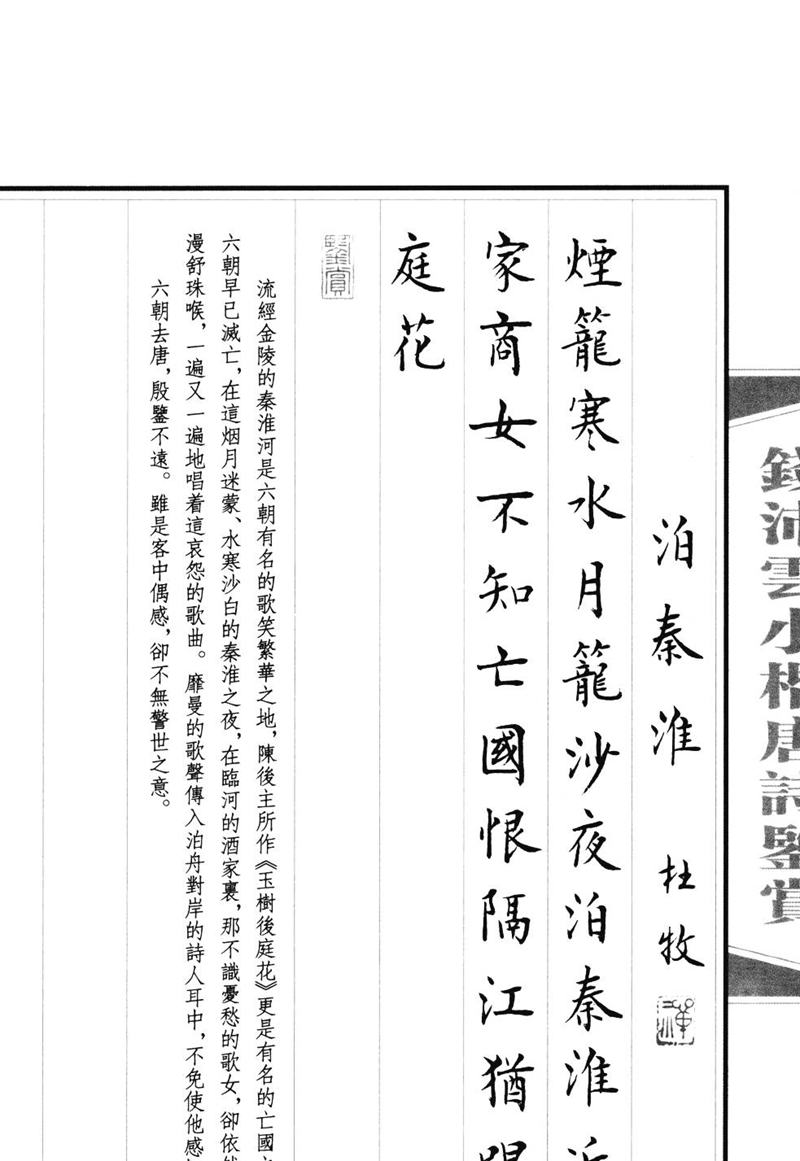 錢沛雲小楷唐詩鑒賞
泊秦淮 杜牧
煙籠寒水月籠沙夜泊秦淮近
家商女不知亡國恨隔江猶唱
庭花
鑒賞
流經金陵的秦淮河是六朝有名的歌笑繁華之地，陳後主所作《玉樹後庭花》更是有名的亡國
六朝早已滅亡，在這烟月迷蒙、水寒沙白的秦淮之夜，在臨河的酒家裏，那不識憂愁的歌女，卻依然
漫舒珠喉，一遍又一遍地唱着這哀怨的歌曲。靡曼的歌聲傳入泊舟對岸的詩人耳中，不免使他感
六朝去唐，殷鑒不遠。雖是客中偶感，卻不無警世之意。